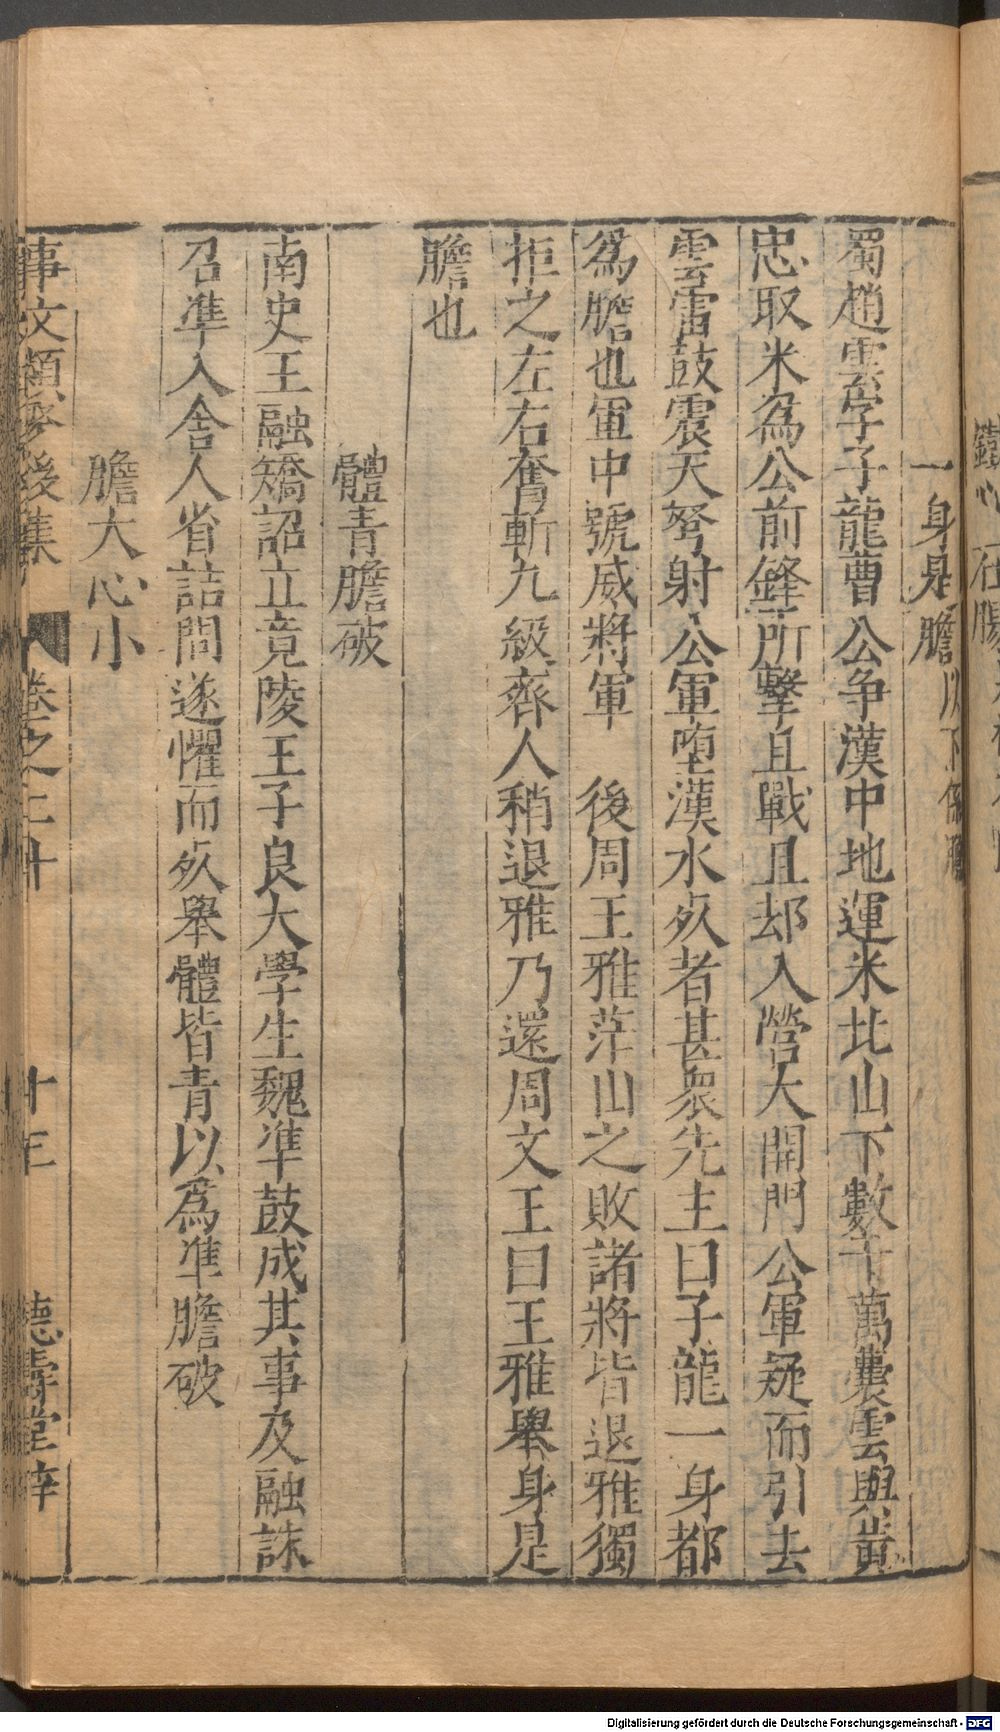 一身是膽以下係膽
蜀趙雲字子龍曹公争漢中地運米北山下數千萬囊雲與黄
忠取米為公前鋒所擊且戰且却入營大開門公軍疑而引去
雲雷鼓震天弩射公軍堕漢水死者甚衆先主曰子龍一身都
為膽也軍中號威將軍　後周王雅茫山之敗諸將皆退雅獨
拒之左右奮斬九級齊人稍退雅乃還周文王曰王雅舉身是
膽也
體青膽破
南史王融矯詔立竟陵王子良大學生魏準鼓成其事及融誅
召準入舍人省詰問遂懼而死舉體皆青以為準膽破
膽大心小
事文類聚後集 卷之二十 十五 德壽堂梓
Digitalisierung gefördert durch die Deutsche Forschungsgemeinschaft - DFG